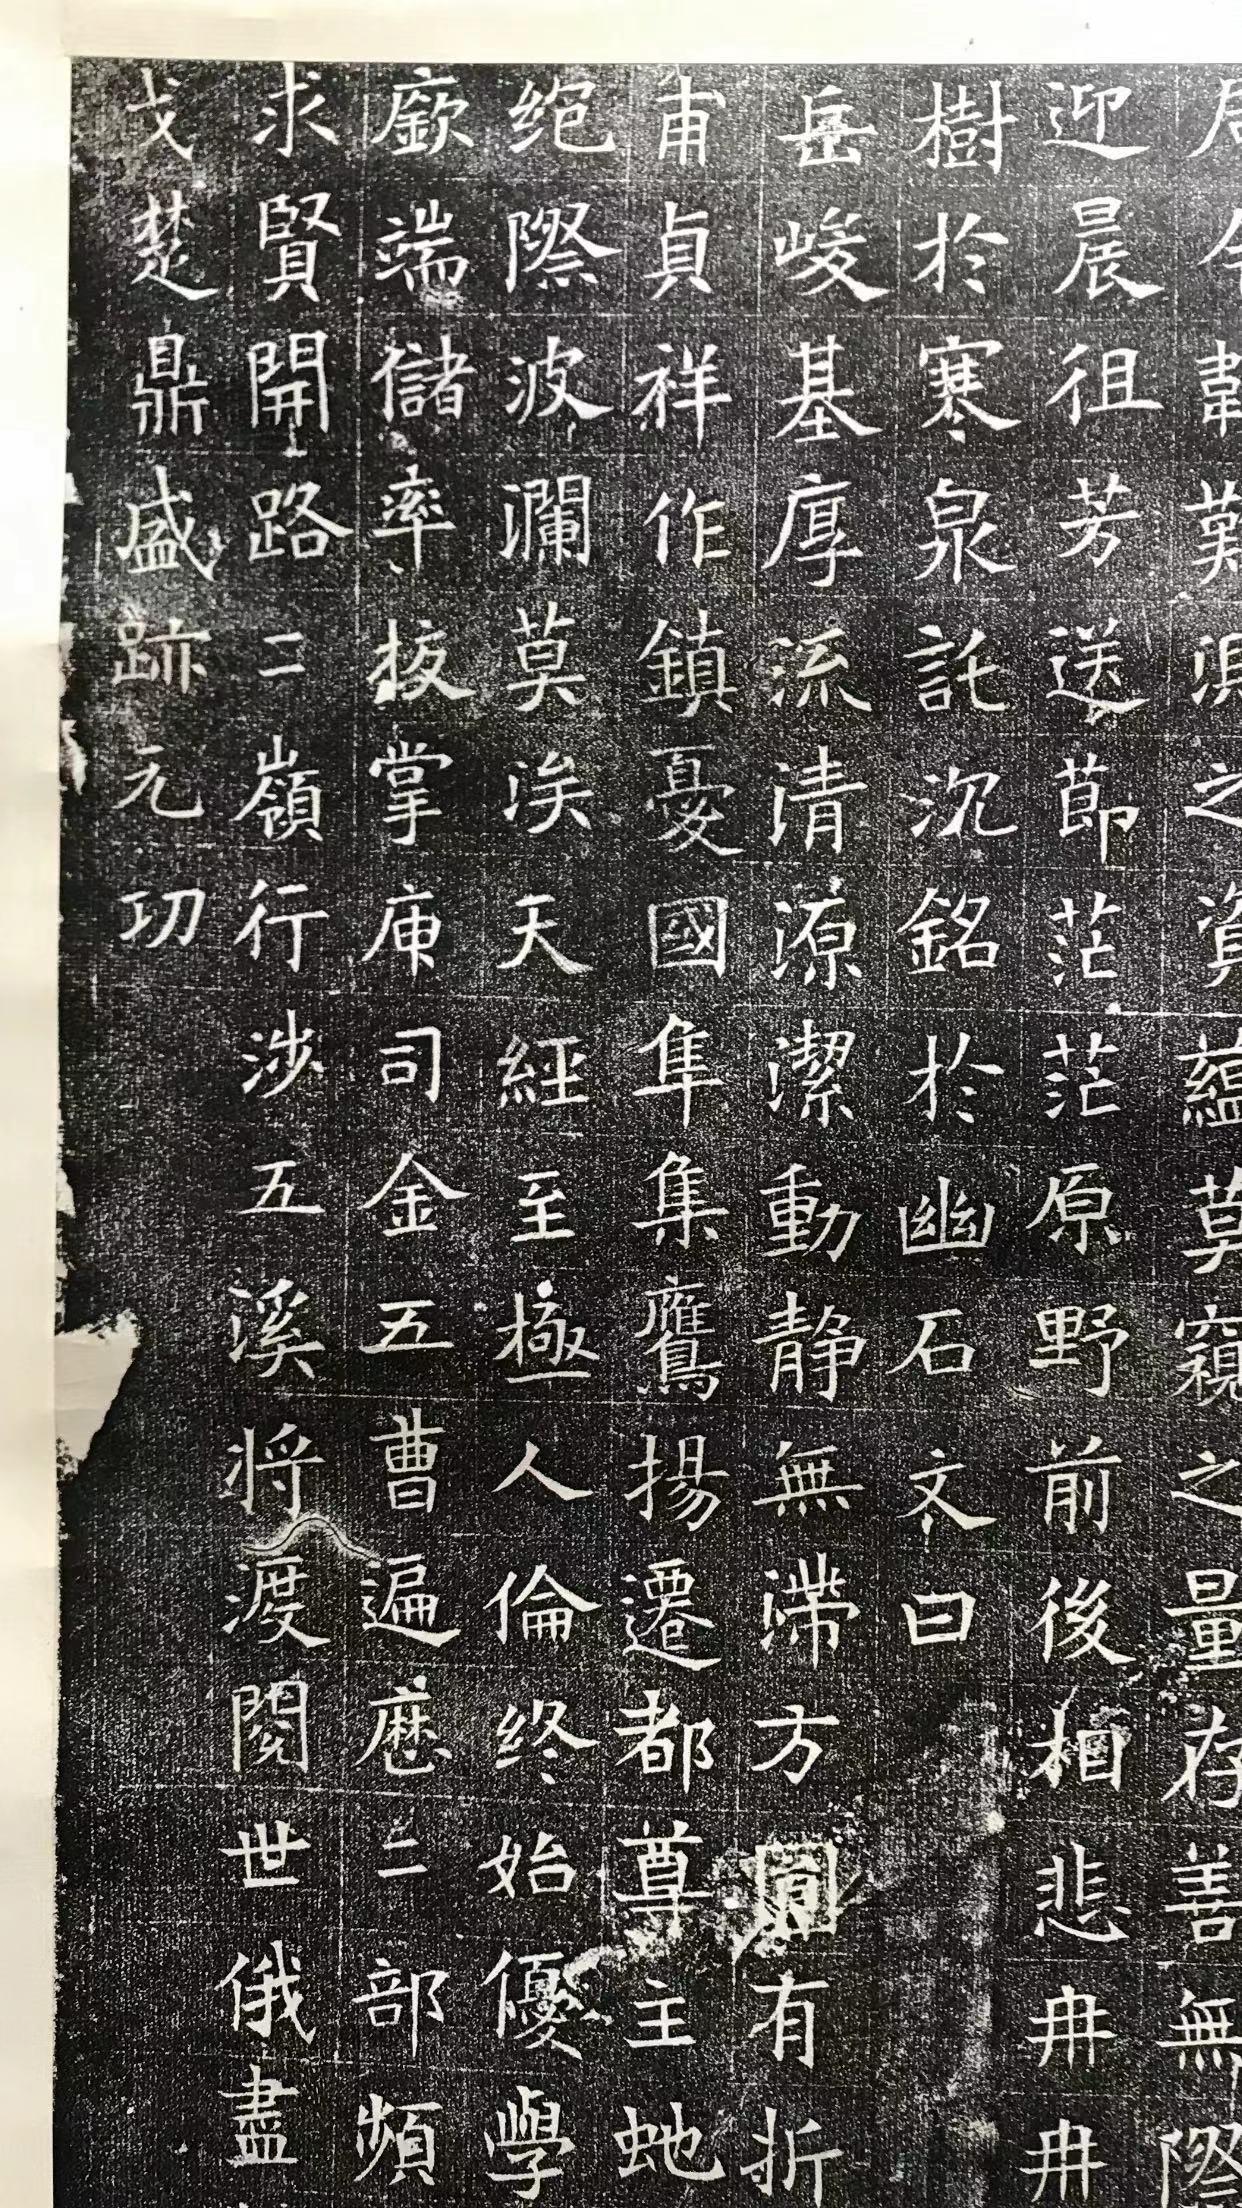 難之資蘊莫窺之量存善無際
迎晨徂芳送節茫茫原野前後相悲冉冉
樹於寒泉託沉銘於幽石文曰
岳峻基厚流清源潔動静無滯方圓有折
甫貞祥作鎮憂國隼集鷹揚遷都尊主虵
絕際波瀾莫涘天經至極人倫終始優學
廞端儲率拔掌庾司金五曹遍歷二部頻
求賢開路二嶺行涉五溪將渡閱世俄盡
戈楚鼎盛跡元功